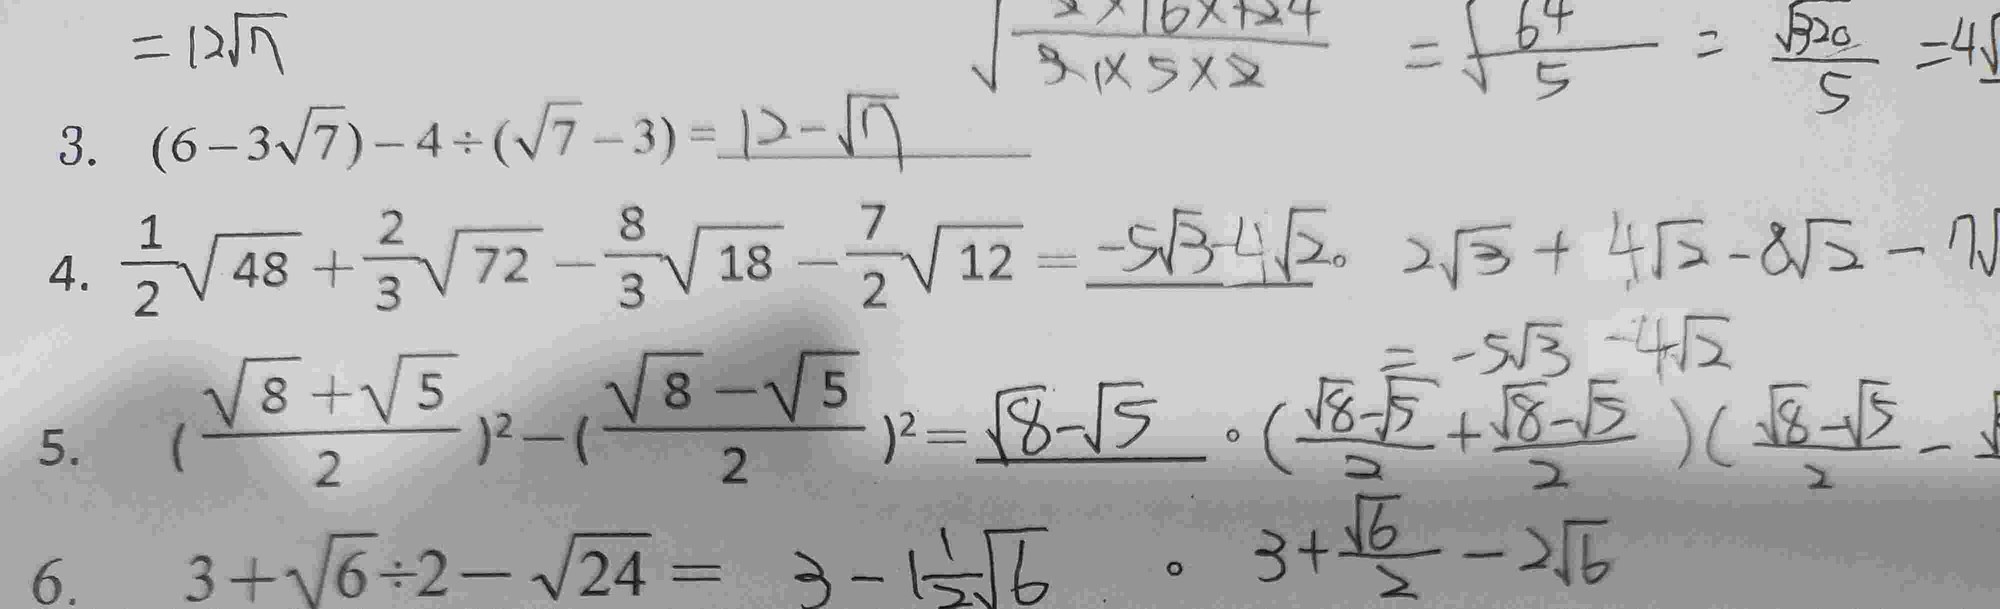 =12√7
√(2×16×+24/3 1×5×2) = √(64/5) = √320/5 =4√
3. (6-3√7)-4÷(√7-3)= 12-√7
4. 1/2√48+2/3√72-8/3√18-7/2√12= -5√3-4√2。 2√3+4√2-8√2-7√
= -5√3 -4√2
5. ((√8+√5)/2)²-((√8-√5)/2)²= √8-√5 。((√8-√5)/2+(√8-√5)/2)((√8-√5)/2-√
6. 3+√6÷2-√24= 3-1 1/2√6 。 3+√6/2-2√6